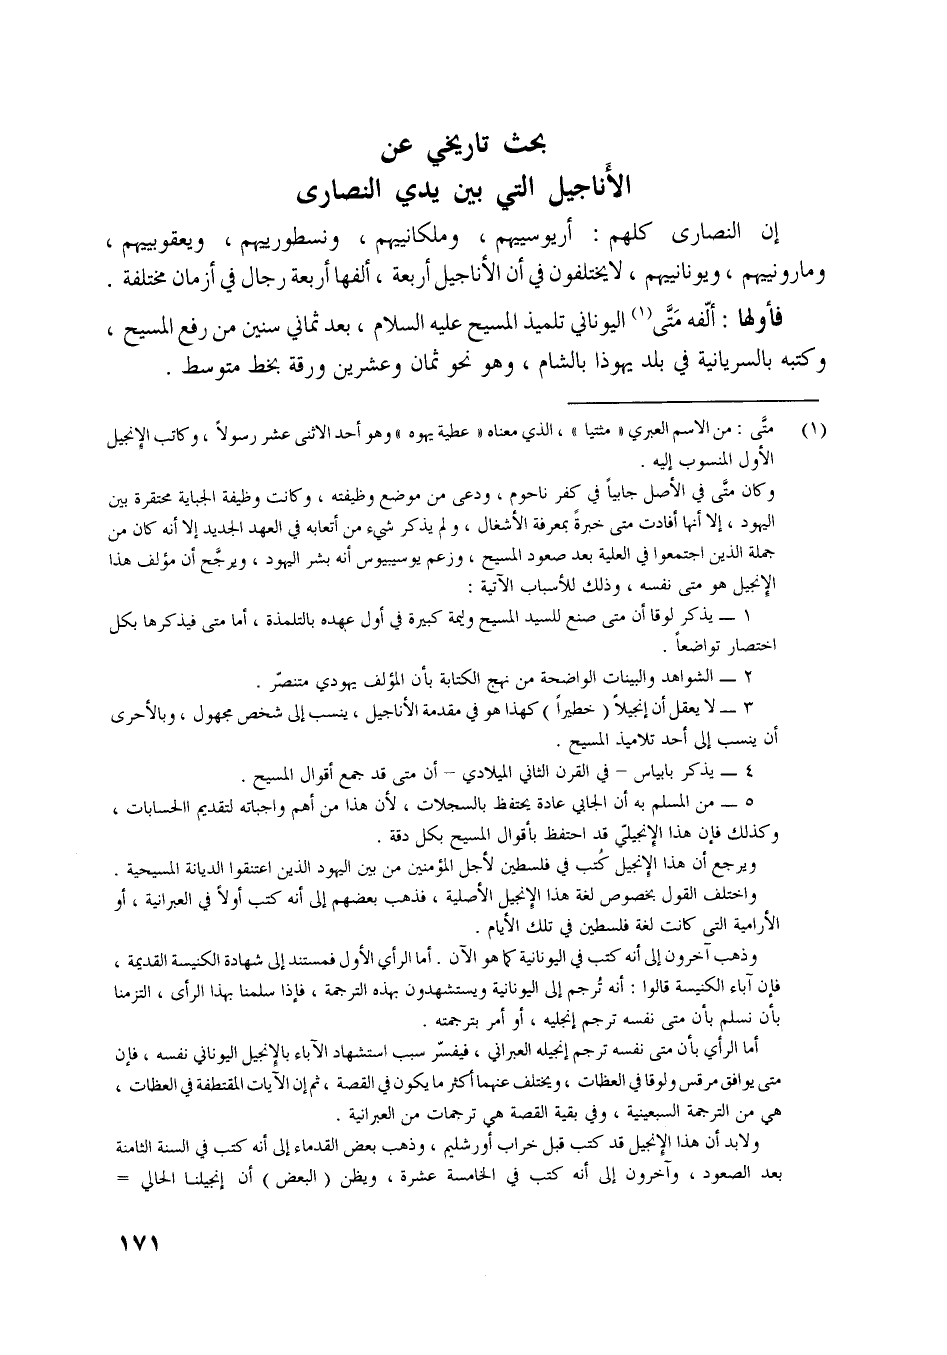 بحث تاريخي عن
الأَناجيل التي بين يدي النصارى
إن النصارى كلهم : أريوسييهم ، وملكانييهم ، ونسطورييهم ، ويعقوبييهم ،
ومارونييهم ، ويونانييهم ، لايختلفون في أن الأناجيل أربعة ، ألفها أربعة رجال في أزمان مختلفة .
فأولها : ألّفه مَتَّى(١) اليوناني تلميذ المسيح عليه السلام ، بعد ثماني سنين من رفع المسيح ،
وكتبه بالسريانية في بلد يهوذا بالشام ، وهو نحو ثمان وعشرين ورقة بخط متوسط .
(١) متَّى : من الاسم العبري « مثتيا » ، الذي معناه « عطية يهوه » وهو أحد الاثنى عشر رسولاً ، وكاتب الإنجيل
الأول المنسوب إليه .
وكان متَّى في الأصل جابياً في كفر ناحوم ، ودعى من موضع وظيفته ، وكانت وظيفة الجباية محتقرة بين
اليهود ، إلا أنها أفادت متى خبرةً بمعرفة الأشغال ، و لم يذكر شيء من أتعابه في العهد الجديد إلا أنه كان من
جملة الذين اجتمعوا في العلية بعد صعود المسيح ، وزعم يوسيبيوس أنه بشر اليهود ، ويرجَّح أن مؤلف هذا
الإنجيل هو متى نفسه ، وذلك للأسباب الآتية :
١ ــ يذكر لوقا أن متى صنع للسيد المسيح وليمة كبيرة في أول عهده بالتلمذة ، أما متى فيذكرها بكل
اختصار تواضعاً .
٢ ــ الشواهد والبينات الواضحة من نهج الكتابة بأن المؤلف يهودي متنصّر .
٣ ــ لا يعقل أن إنجيلاً ( خطيراً ) كهذا هو في مقدمة الأناجيل ، ينسب إلى شخص مجهول ، وبالأحرى
أن ينسب إلى أحد تلاميذ المسيح .
٤ ــ يذكر بابياس – في القرن الثاني الميلادي – أن متى قد جمع أقوال المسيح .
٥ ــ من المسلم به أن الجابي عادة يحتفظ بالسجلات ، لأن هذا من أهم واجباته لتقديم االحسابات ،
وكذلك فإن هذا الإنجيليّ قد احتفظ بأقوال المسيح بكل دقة .
ويرجع أن هذا الإنجيل كُتب في فلسطين لأجل المؤمنين من بين اليهود الذين اعتنقوا الديانة المسيحية .
واختلف القول بخصوص لغة هذا الإنجيل الأصلية ، فذهب بعضهم إلى أنه كتب أولاً في العبرانية ، أو
الأرامية التى كانت لغة فلسطين في تلك الأيام .
وذهب آخرون إلى أنه كتب في اليونانية كما هو الآن . أما الرأي الأول فمستند إلى شهادة الكنيسة القديمة ،
فإن آباء الكنيسة قالوا : أنه تُرجم إلى اليونانية ويستشهدون بهذه الترجمة ، فإذا سلمنا بهذا الرأى ، التزمنا
بأن نسلم بأن متى نفسه ترجم إنجليه ، أو أمر بترجمته .
أما الرأي بأن متى نفسه ترجم إنجيله العبراني ، فيفسّر سبب استشهاد الآباء بالإنجيل اليوناني نفسه ، فإن
متى يوافق مرقس ولوقا في العظات ، ويختلف عنهما أكثر ما يكون في القصة ، ثم إن الآيات المقتطفة في العظات ،
هي من الترجمة السبعينية ، وفي بقية القصة هي ترجمات من العبرانية .
ولابد أن هذا الإنجيل قد كتب قبل خراب أورشليم ، وذهب بعض القدماء إلى أنه كتب في السنة الثامنة
بعد الصعود ، وآخرون إلى أنه كتب في الخامسة عشرة ، ويظن ( البعض ) أن إنجيلنا الحالي =
١٧١